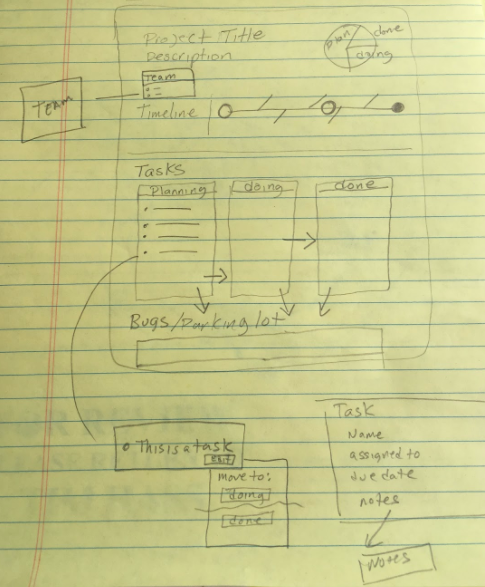 Project Title
Description
plan
done
doing
Team
Team
Timeline
Tasks
Planning
doing
done
Bugs/Parking lot
This is a task
EDIT
move to:
doing
done
Task
Name
assigned to
due date
notes
Notes